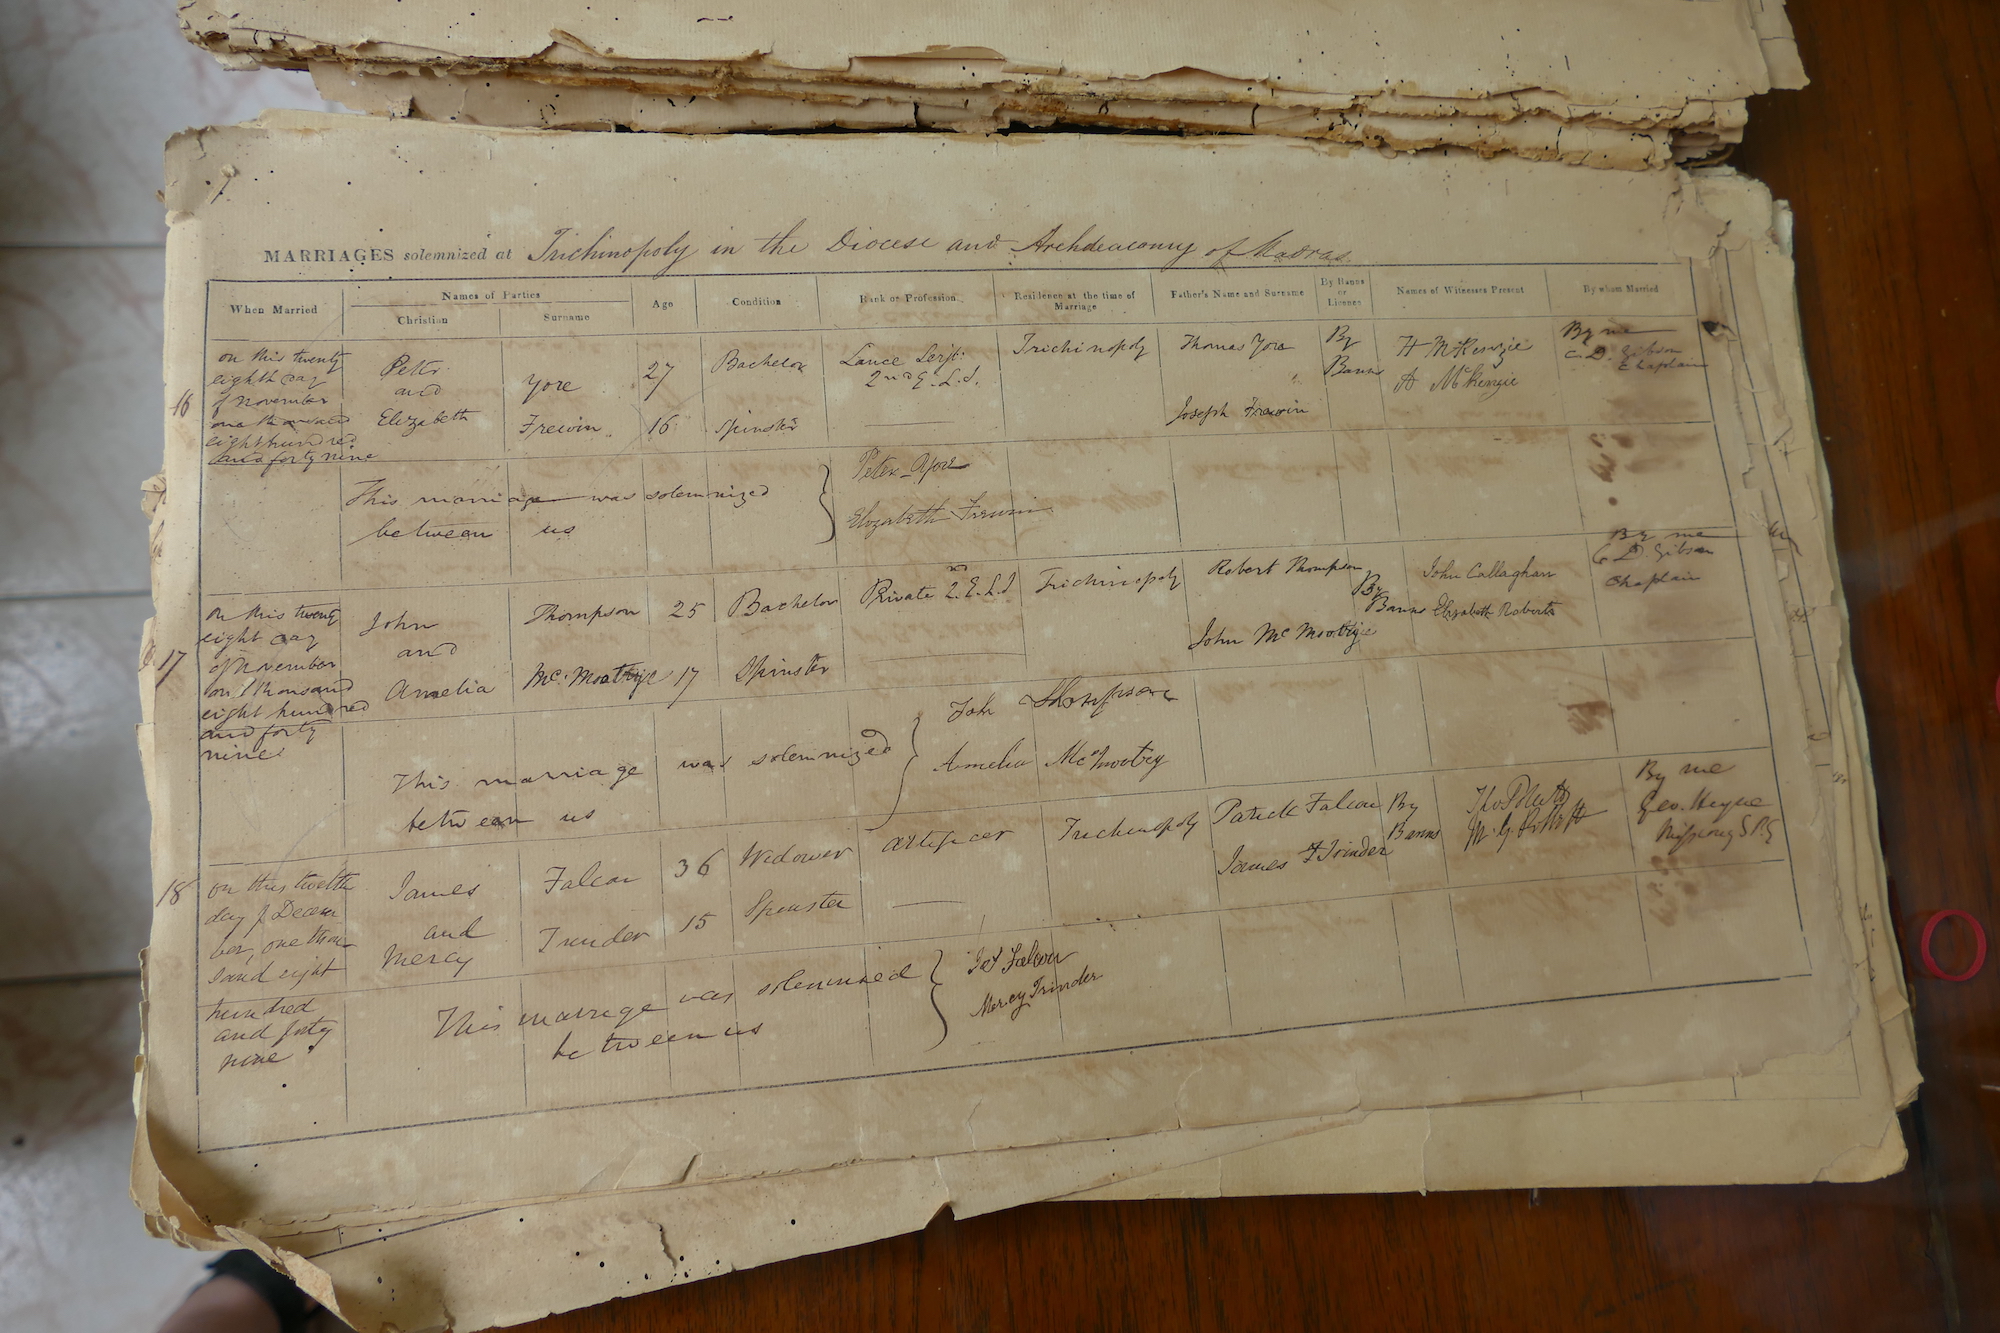 MARRIAGES solemnized at Trichinopoly in the Diocese and Archdeaconry of Madras
When Married
Names of Parties
Christian
Surname
Age
Condition
Rank or Profession
Residence at the time of Marriage
Father's Name and Surname
By Banns or Licence
Names of Witnesses Present
By whom Married
16
on this twenty
eighth day
of November
one thousand
eight hundred
and forty nine
Peter
and
Elizabeth
Yore
Frewin
27
16
Bachelor
Spinster
Lance Serjt.
2nd E. L. I.
Trichinopoly
Thomas Yore
Joseph Frewin
By
Banns
H McKenzie
A McKenzie
By me
C. D. Gibson
Chaplain
This marriage was solemnized
between us
Peter Yore
Elizabeth Frewin
17
on this twenty
eight day
of November
one thousand
eight hundred
and forty
nine
John
and
Amelia
Thompson
25
17
Bachelor
Spinster
Private 2nd E. L. I
Trichinopoly
Robert Thompson
By
Banns
John Callaghan
Elizabeth Roberts
By me
C D. Gibson
Chaplain
This marriage was solemnized
between us
Joh Thompson
Amelia
18
on this twelfth
day of Decem
ber, one thou
sand eight
hundred
and forty
nine
James
and
Mercy
Falcon
Trinder
36
15
Widower
Spinster
artificer
Trichinopoly
Patrick Falcon
James Trinder
By
Banns
By me
Geo. Heyne
Missionary S.P.G
This marriage was solemnized
between us
Jas Falcon
Mercy Trinder